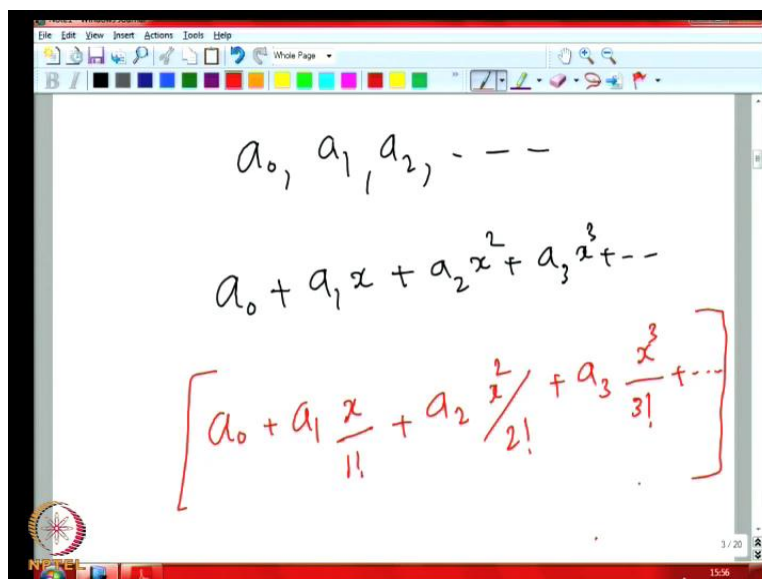 File Edit View Insert Actions Tools Help
Whole Page
B I
a₀, a₁, a₂, - - -
a₀ + a₁x + a₂x² + a₃x³ + --
[a₀ + a₁ x/1! + a₂ x²/2! + a₃ x³/3! + ...]
3 / 20
NPTEL
15:56